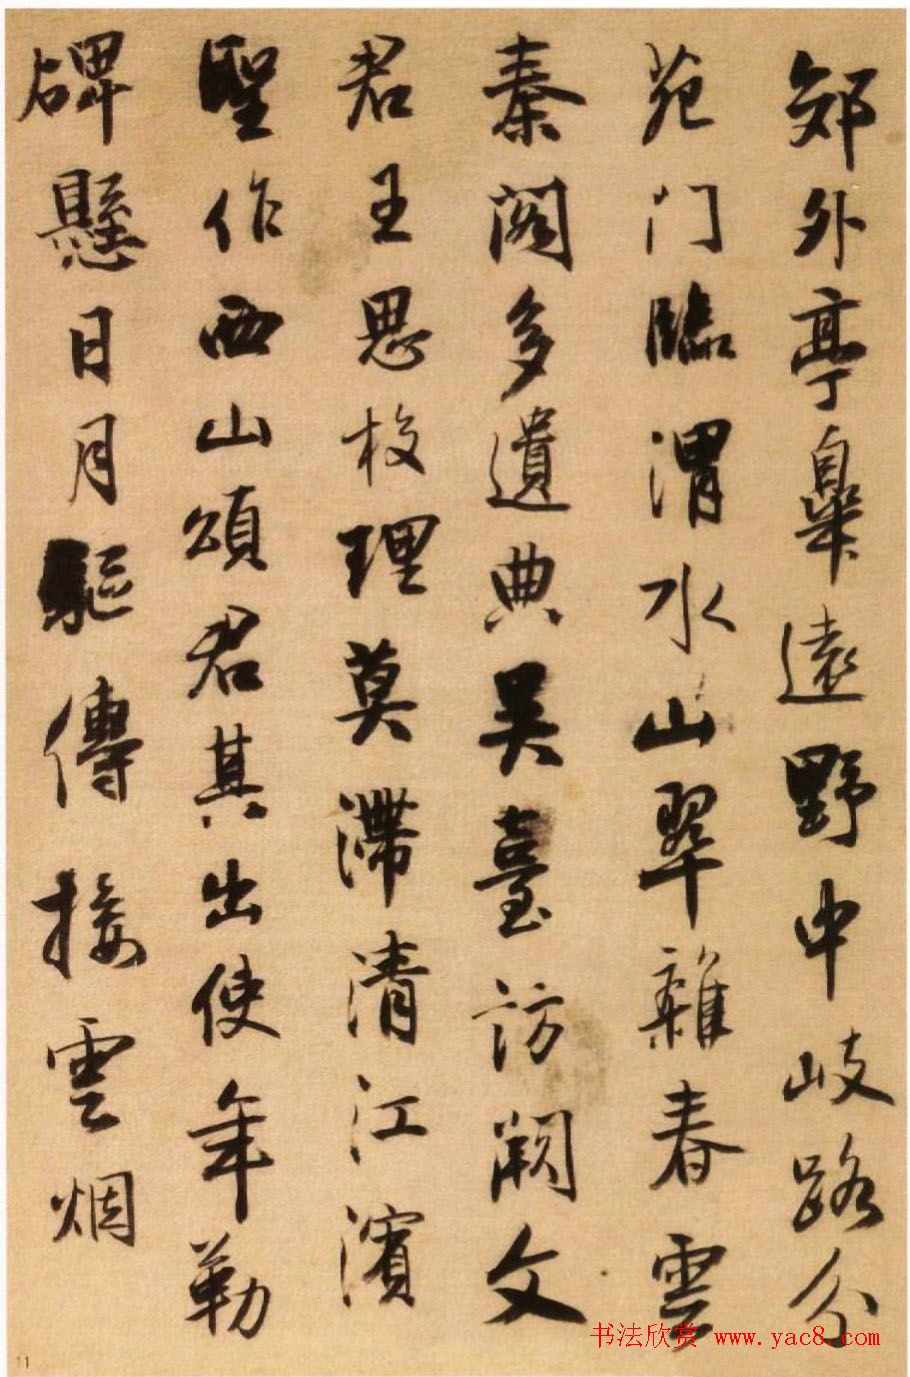 郊外亭皋遠野中岐路分
苑门臨渭水山翠雜春雲
秦阁多遺典吴臺访阙文
君王思校理莫滯清江濱
聖作西山頌君其出使年勒
碑懸日月驱傳接雲烟
书法欣赏 www.yac8.com
11